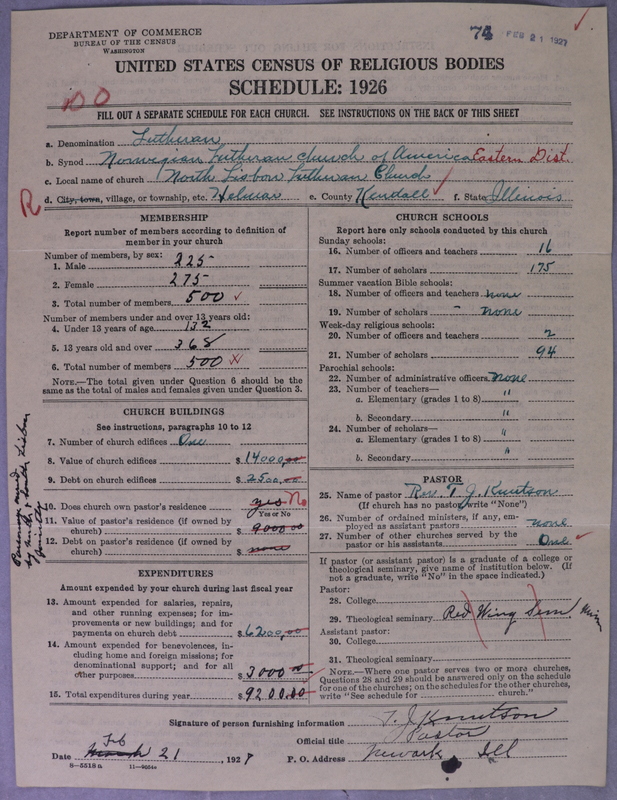 DEPARTMENT OF COMMERCE
BUREAU OF THE CENSUS
WASHINGTON
74 FEB 21 1927
UNITED STATES CENSUS OF RELIGIOUS BODIES
SCHEDULE: 1926
FILL OUT A SEPARATE SCHEDULE FOR EACH CHURCH. SEE INSTRUCTIONS ON THE BACK OF THIS SHEET
a. Denomination Lutheran
b. Synod Norwegian Lutheran church of America Eastern Dist.
c. Local name of church North Lisbon Lutheran Church
R
d. City, town, village, or township, etc. Helmar e. County Kendall f. State Illinois
MEMBERSHIP
Report number of members according to definition of
member in your church
Number of members, by sex:
1. Male 225
2. Female 275
3. Total number of members 500
Number of members under and over 13 years old:
4. Under 13 years of age 132
5. 13 years old and over 368
6. Total number of members 500
NOTE.—The total given under Question 6 should be the
same as the total of males and females given under Question 3.
CHURCH BUILDINGS
See instructions, paragraphs 10 to 12
7. Number of church edifices One
8. Value of church edifices $14000,00
9. Debt on church edifices $2500,00
10. Does church own pastor's residence yes No
Yes or No
11. Value of pastor's residence (if owned by
church) $9000 00
12. Debt on pastor's residence (if owned by
church) $none
EXPENDITURES
Amount expended by your church during last fiscal year
13. Amount expended for salaries, repairs,
and other running expenses; for im-
provements or new buildings; and for
payments on church debt $6200,00
14. Amount expended for benevolences, in-
cluding home and foreign missions; for
denominational support; and for all
other purposes $3000 00
15. Total expenditures during year $9200.00
CHURCH SCHOOLS
Report here only schools conducted by this church
Sunday schools:
16. Number of officers and teachers 16
17. Number of scholars 175
Summer vacation Bible schools:
18. Number of officers and teachers none
19. Number of scholars - none
Week-day religious schools:
20. Number of officers and teachers 2
21. Number of scholars 94
Parochial schools:
22. Number of administrative officers none
23. Number of teachers—
a. Elementary (grades 1 to 8) "
b. Secondary "
24. Number of scholars—
a. Elementary (grades 1 to 8) "
b. Secondary "
PASTOR
25. Name of pastor Rev. T. J. Knutson
(If church has no pastor, write "None")
26. Number of ordained ministers, if any, em-
ployed as assistant pastors none
27. Number of other churches served by the
pastor or his assistants One
If pastor (or assistant pastor) is a graduate of a college or
theological seminary, give name of institution below. (If
not a graduate, write "No" in the space indicated.)
Pastor:
28. College
29. Theological seminary Red Wing Sem Minn
Assistant pastor:
30. College
31. Theological seminary
NOTE.—Where one pastor serves two or more churches,
Questions 28 and 29 should be answered only on the schedule
for one of the churches; on the schedules for the other churches,
write "See schedule for church."
Signature of person furnishing information T. J. Knutson
Official title Pastor
Date Feb 21, 1927 P. O. Address Newark Ill
8—5518 a